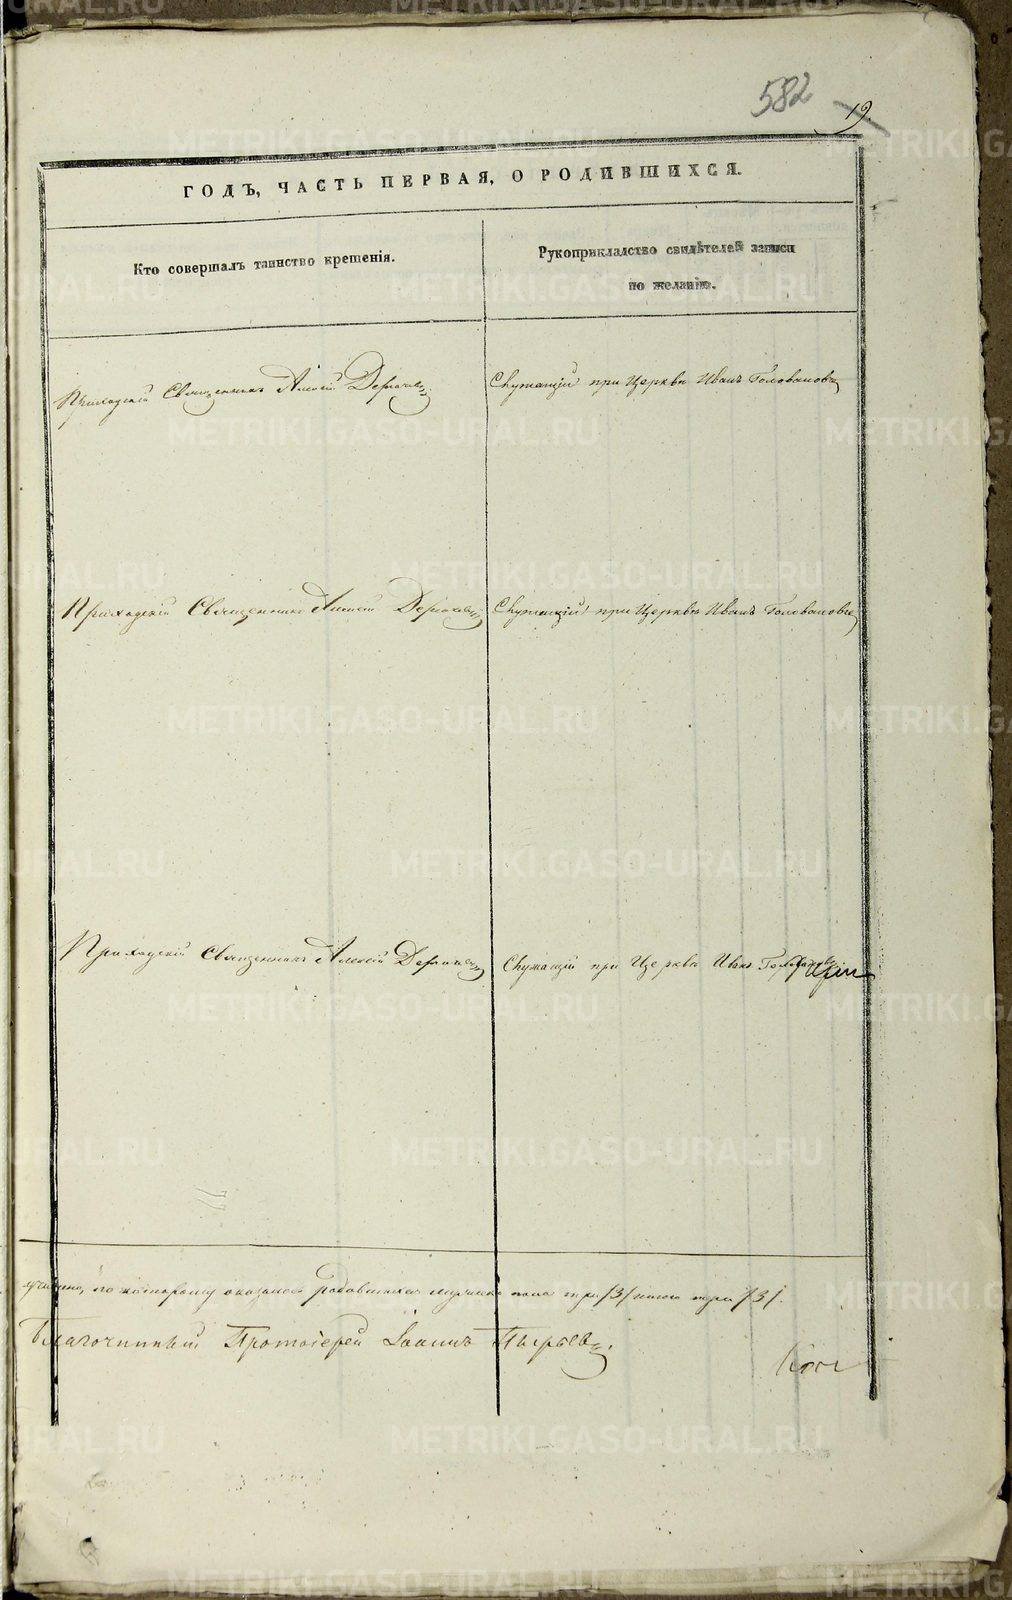 582
19.
ГОДЪ, ЧАСТЬ ПЕРВАЯ, О РОДИВШИХСЯ.
Кто совершалъ таинство крещенія.
Рукоприкладство свидѣтелей записи
по желанію.
Приходскій Священникъ Алексій
Служащій при Церквѣ Иванъ Головановъ
Приходскій Священникъ Алексій
Служащій при Церквѣ Иванъ Головановъ
Приходскій Священникъ Алексій
Служащій при Церквѣ Иванъ Головановъ
по которому оказалось родившихся мужеска пола три /3/ три /3/.
Благочинный Протоіерей Іоаннъ Пырьевъ.
METRIKI.GASO-URAL.RU